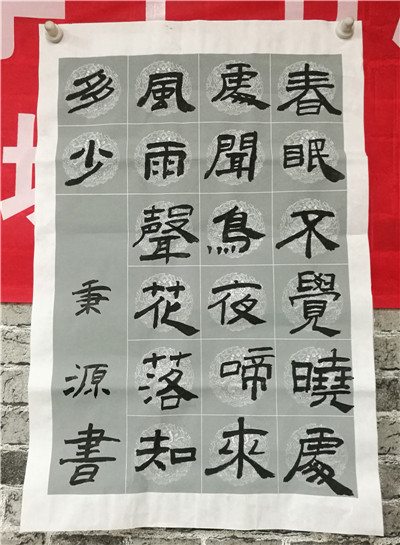 春眠不覺曉處
處聞鳥夜啼來
風雨聲花落知
多少
秉源書